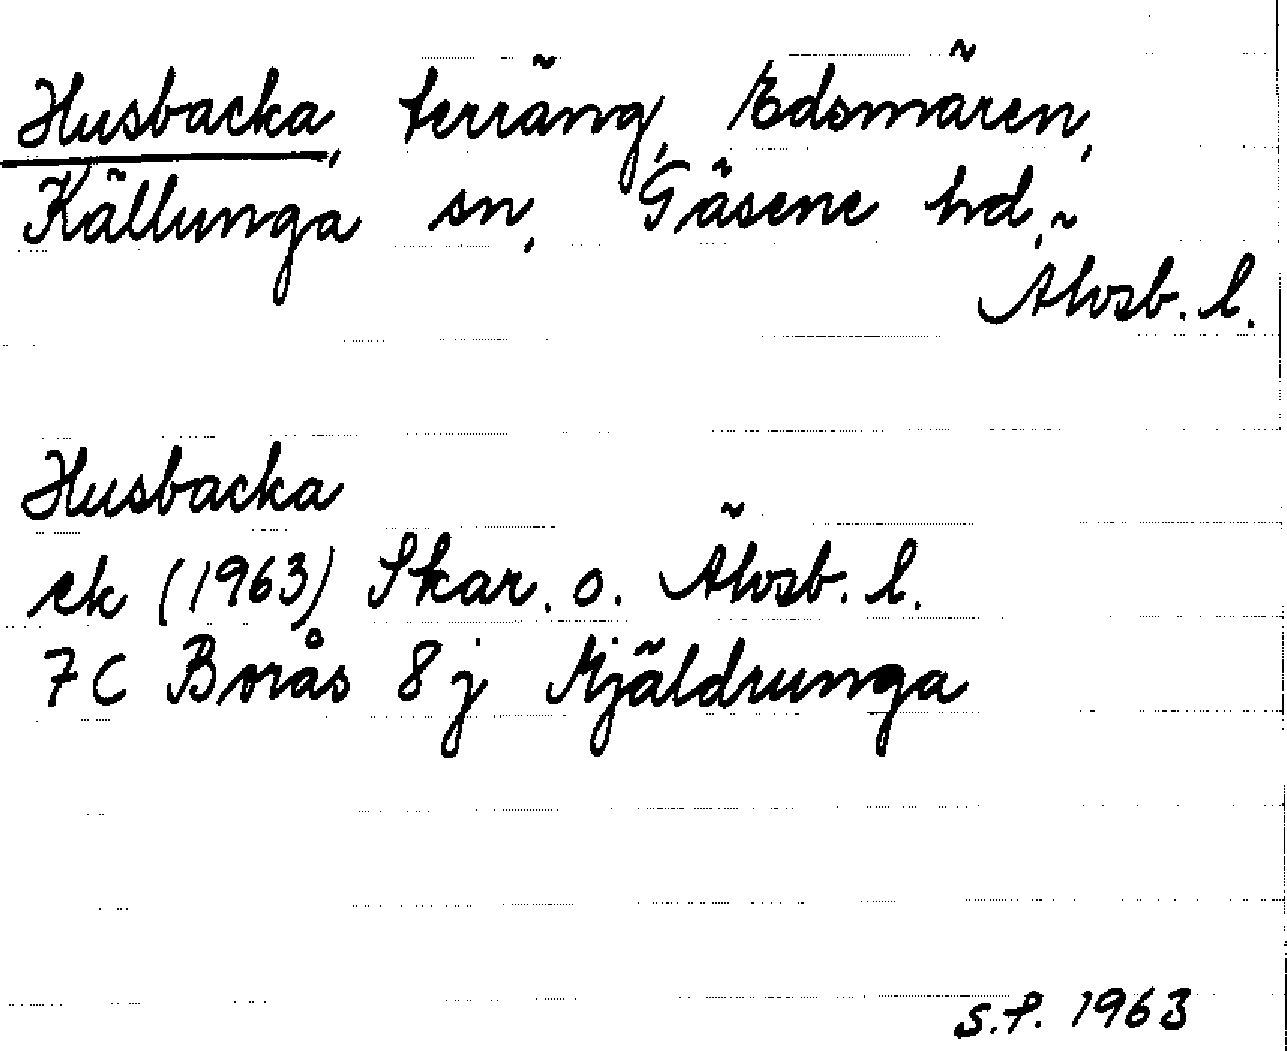 Husbacka, terräng, Edsmären,
Källunga sn, Gäsene hd,
Älvsb. l.
Husbacka
ek (1963) Skar. o. Älvsb. l.
7C Borås 8j Mjäldrunga
S.F. 1963